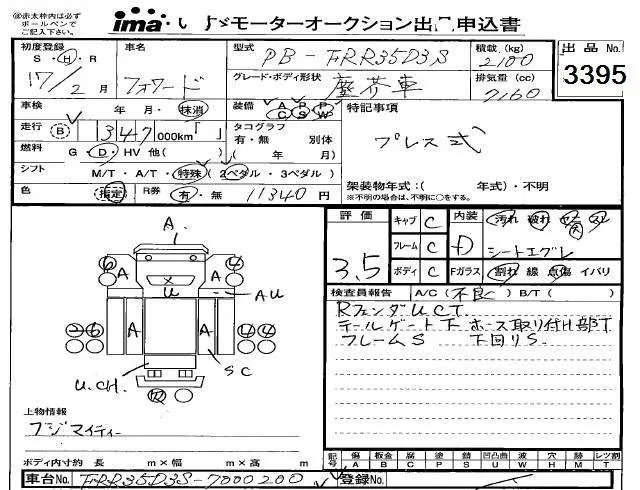 ◎赤太枠内は必ず
ボールペンで
ご記入下さい。
ima いすゞモーターオークション出品申込書
初度登録 S・H・R 17/2月
車名 フォワード
型式 PB-FRR35D3S
積載(kg) 2100
出品No. 3395
グレード・ボディ形状 塵芥車
排気量(cc) 7160
車検 年・月・抹消
装備 A P P C S W
特記事項
走行 B 347 000km「 」
タコグラフ 有・無 別体
( 年 月)
プレス式
燃料 G・D・HV 他( )
シフト M/T・A/T・特殊 (2ペダル・3ペダル)
架装物年式:( 年式)・不明
※不明の場合は、不明に○をする。
色 指定 R券 有・無 11340円
評価 3.5
キャブ C
フレーム C
ボディ C
内装 D 汚れ 破れ
シートエグレ
Fガラス 割れ 線 点傷 イバリ
A
④
A A
U
AU
A A
④④
SC
U.CH
検査員報告 A/C(不良) B/T( )
RフェンダUCT
テールゲート下 ホース取り付け部T
フレームS 下回りS.
上物情報
フジマイティー
ボディ内寸約 長 m×幅 m×高 m
記号 傷A 板金B 腐C 塗P 錆S 凹凸曲U 波W 穴H 跡M レンズ割T
車台No. FRR35D3S-7000200
登録No.